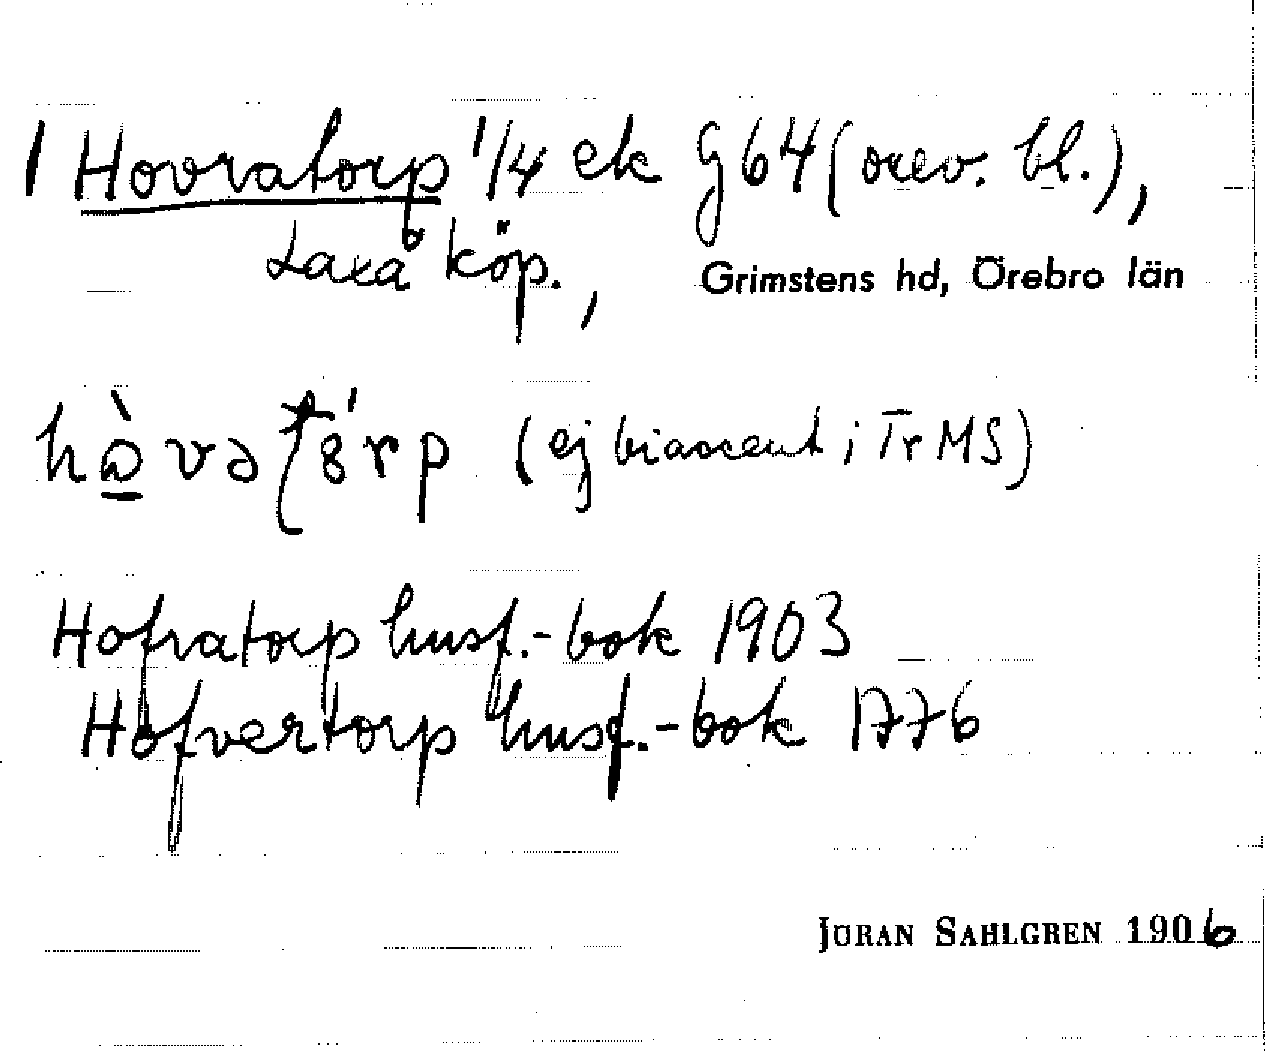 1 Hovratorp 1/4 ek G64 (orev. bl.),
Laxå köp., Grimstens hd, Örebro län
(ej biaccent i TrMS)
Hofratorp husf.-bok 1903
Hofvertorp husf.-bok 1776
JÖRAN SAHLGREN 1906